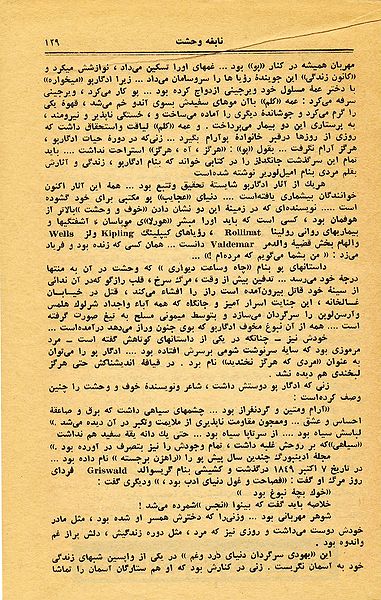 نابغه وحشت ۱۳۹
مهربان همیشه در کنار «پو» بود ... غمهای اورا تسکین میداد ، نوازشش میکرد و
«کانون زندگی» این جویندهٔ رؤیا ها را سروسامان میداد ... زیرا ادگارپو «میخواره»
با دختر عمهٔ مسلول خود ویرجینی ازدواج کرده بود ... پو کار می‌کرد ، ویرجینی
سرفه می‌کرد : عمه «کلم» باآن موهای سفیدش بسوی آندو خم میشد ، قهوهٔ یکی
را گرم میکرد و جوشاندهٔ دیگری را آماده میساخت ، خستگی ناپذیر و نیرومند ،
به پرستاری این دو بیمار می‌پرداخت . و عمه «کلم» لیاقت واستحقاق داشت که
روزی از روزها درقبر خانوادهٔ پوآرام بگیرد ... زنی‌که در دورهٔ حیات ادگارپو ،
هرگز آرام نگرفت ... بقول «پو» : «هرگز ، آه ، هرگز» استراحت نداشت .... باید
تمام این سرگذشت جانگداز را در کتابی خواند که بنام ادگارپو ، زندگی و آثارش
بقلم مردی بنام امیل‌لوریر نوشته شده‌است
هریك از آثار ادگارپو شایستهٔ تحقیق وتتبع بود ... همهٔ این آثار اکنون
خوانندگان بیشماری یافته‌است ... دنیای «عجایب» پو مکتبی برای خود گشوده
است .... نویسنده‌ای که در زمینهٔ این دو نشان دادن «خوف و وحشت» بالاتر از
هوفمان بود ، کسی است که باید اورا مبشر «هورلا»ی موپاسان ، آشفتگیها و
بیماریهای روانی رولینا Rollinat ، رؤیاهای کیپلینگ Kipling ولز Wells
والهام بخش قضیهٔ والدمر Valdemar دانست ... همان کسی که زنده بود و فریاد
می‌زد : « من بشما می‌گویم که مرده‌ام !» ...
داستانهای پو بنام «چاه وساعت دیواری » که وحشت در آن به منتها
درجهٔ خود می‌رسد ... تدفین پیش از وقت ، مرگ سرخ ، قلب رازگو که‌در آن ندائی
از سینهٔ خود قاتل بیرون‌آمده است راز را افشاء میکند، قتل در خیابان
غسالخانه ، این جنایت اسرار آمیز و جانگاه که همه آباء واجداد شرلوك هلمس
وارسن‌لوپن را سرگردان می‌سازد و بتوسط میمونی مسلح به تیغ صورت گرفته
است .... همه از آن نبوغ مخوف ادگارپو که بوی جنون وراز می‌دهد درآمده‌است ...
خودش نیز ... چنانکه در یکی از داستانهای کوتاهش گفته است ... مرد
مرموزی بود که سایهٔ سرنوشت شومی برسرش افتاده بود .... ادگار پو را می‌توان
به عنوان «مردی که هرگز نخندید» نام برد . در قیافهٔ اندیشناکش حتی هرگز
لبخندی هم دیده نشد .
زنی که ادگار پو دوستش داشت ، شاعر ونویسندهٔ خوف و وحشت را چنین
وصف کرده‌است :
«آرام ومتین و گردنفراز بود ... چشمهای سیاهی داشت که برق و صاعقهٔ
احساس و عشق ... ومعجون مقاومت ناپذیری از ملایمت وتکبر در آن دیده می‌شد .»
لباسش سیاه بود .... از سرتاپا سیاه بود ... حتی یك دانه یقهٔ سفید هم نداشت
«سیاهی»که بر روحش غلبه داشت ، تمام وجودش را نیز بتصرف در آورده بود .
مجلهٔ ادینبورگ چندین سال پیش پو را «راهزن برجسته » نام داده بود ...
در تاریخ ۷ اکتبر ۱۸۴۹ درگذشت و کشیشی بنام گریسوالد Griswald فردای
روز مرگ او گفت : «فصاحت و غول دنیای ادب بود ، » ودیگری گفت :
«خوك بچهٔ نبوغ بود »
خلاصه باید گفت که بینوا «نجس »شمرده می‌شد !
شوهر مهربانی بود ... وزنی‌را که دخترش همسر او شده بود ، مثل مادر
خودش دوست می‌داشت و روزی نیز که مرد ، مثل دوره زندگیش ، دلش براز غم
واندوه بود .
این «یهودی سرگردان دنیای درد وغم » در یکی از واپسین شبهای زندگی
خود به آسمان نگریست . زنی در کنارش بود که او هم ستارگان آسمان را تماشا